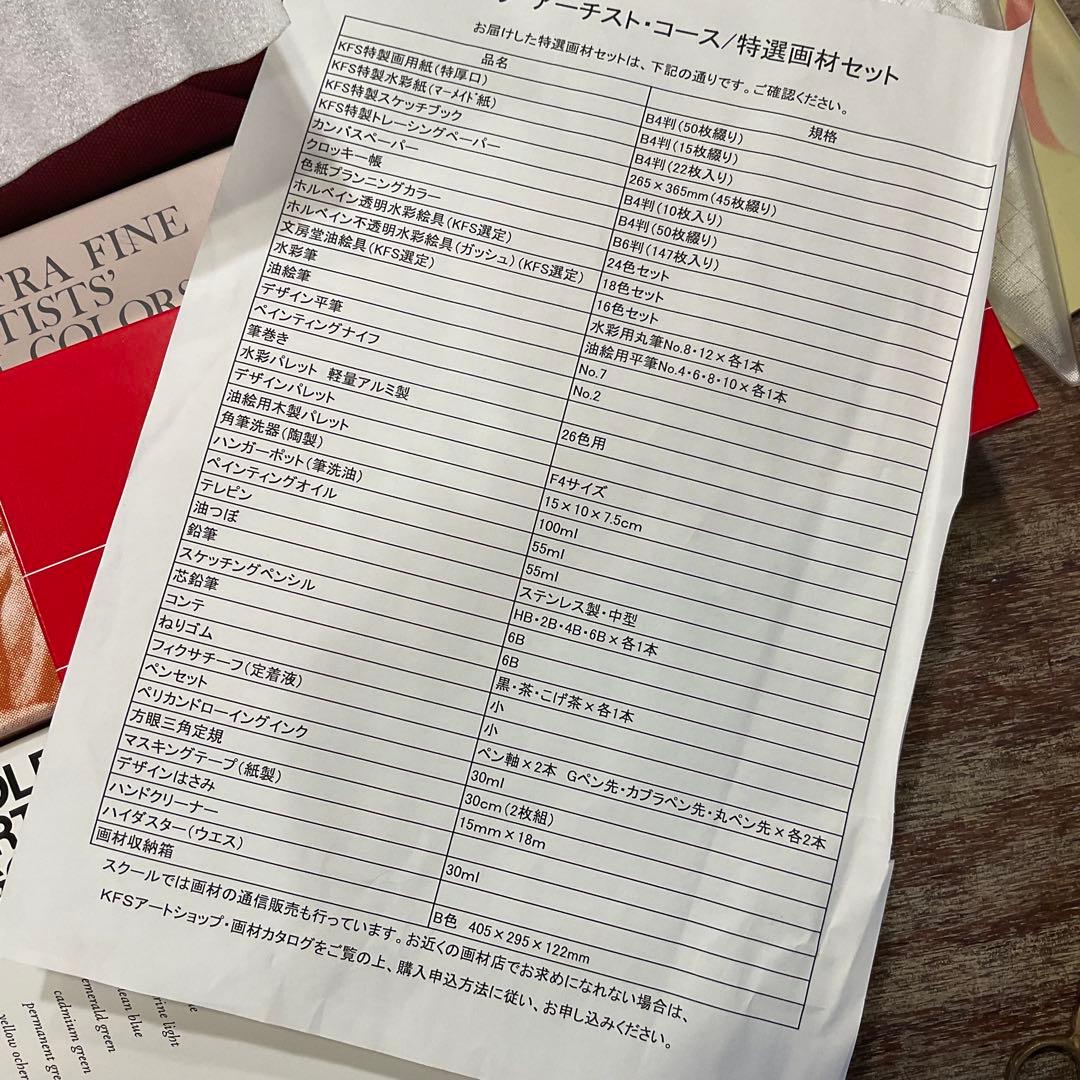 アーチスト・コース/特選画材セット
お届けした特選画材セットは、下記の通りです。ご確認ください。
品名 規格
KFS特製画用紙(特厚口) B4判(50枚綴り)
KFS特製水彩紙(マーメイド紙) B4判(15枚綴り)
KFS特製スケッチブック B4判(22枚入り)
KFS特製トレーシングペーパー 265×365mm(45枚綴り)
カンバスペーパー B4判(10枚入り)
クロッキー帳 B4判(50枚綴り)
色紙プランニングカラー B6判(147枚入り)
ホルベイン透明水彩絵具(KFS選定) 24色セット
ホルベイン不透明水彩絵具(ガッシュ)(KFS選定) 18色セット
文房堂油絵具(KFS選定) 16色セット
水彩筆 水彩用丸筆No.8・12×各1本
油絵筆 油絵用平筆No.4・6・8・10×各1本
デザイン平筆 No.7
ペインティングナイフ No.2
筆巻き
水彩パレット 軽量アルミ製 26色用
デザインパレット
油絵用木製パレット F4サイズ
角筆洗器(陶製) 15×10×7.5cm
ハンガーポット(筆洗油) 100ml
ペインティングオイル 55ml
テレピン 55ml
油つぼ ステンレス製・中型
鉛筆 HB・2B・4B・6B×各1本
スケッチングペンシル 6B
芯鉛筆 6B
コンテ 黒・茶・こげ茶×各1本
ねりゴム 小
フィクサチーフ(定着液) 小
ペンセット ペン軸×2本 Gペン先・カブラペン先・丸ペン先×各2本
ペリカンドローイングインク 30ml
方眼三角定規 30cm(2枚組)
マスキングテープ(紙製) 15mm×18m
デザインはさみ
ハンドクリーナー 30ml
ハイダスター(ウエス)
画材収納箱 B色 405×295×122mm
スクールでは画材の通信販売も行っています。お近くの画材店でお求めになれない場合は、
KFSアートショップ・画材カタログをご覧の上、購入申込方法に従い、お申し込みください。
TRA FINE
TISTS'
COLORS
rine light
lean blue
emerald green
cadmium green
permanent gre
yellow ocher